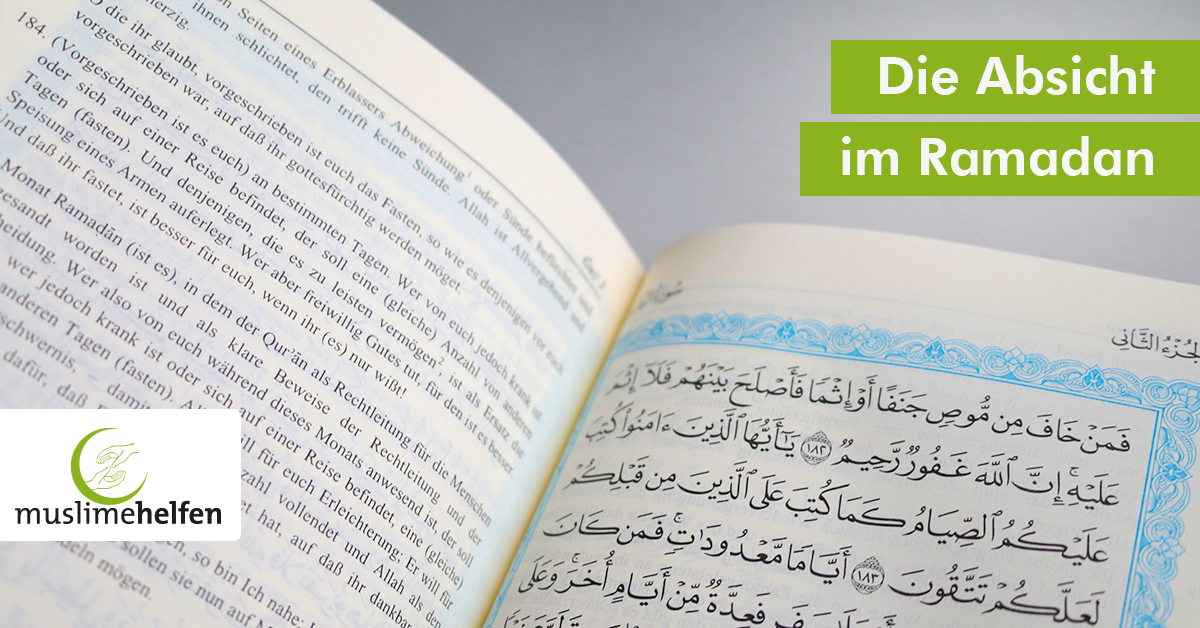 Die Absicht
im Ramadan
Seiten eines Erblassers Abweichung¹ oder Sünde befürchtet und
ihnen schlichtet, den trifft keine Sünde. Allah ist Allvergebend und
die ihr glaubt, vorgeschrieben ist euch das Fasten, so wie es denjenigen vor euch
vorgeschrieben war, auf daß ihr gottesfürchtig werden möget.
184. (Vorgeschrieben ist es euch) an bestimmten Tagen. Wer von euch jedoch krank ist
oder sich auf einer Reise befindet, der soll eine (gleiche) Anzahl von anderen
Tagen (fasten). Und denjenigen, die es zu leisten vermögen², ist als Ersatz die
Speisung eines Armen auferlegt. Wer aber freiwillig Gutes tut, für den ist es besser
Und daß ihr fastet, ist besser für euch, wenn ihr (es) nur wißt!
Monat Ramaḍān (ist es), in dem der Qurʾān als Rechtleitung für die Menschen
gesandt worden ist und als klare Beweise der Rechtleitung und der
heidung. Wer also von euch während dieses Monats anwesend ist, der soll
wer jedoch krank ist oder sich auf einer Reise befindet, eine (gleiche)
anderen Tagen (fasten). will für euch Erleichterung; Er will für
schwernis, damit zahl vollendet und Allah als den
dafür, daß hat, auf daß ihr dankbar
so bin Ich nahe;
sollen sie nun auf
deln mögen.
الجزء الثاني
فَمَنْ خَافَ مِن مُّوصٍ جَنَفًا أَوْ إِثْمًا فَأَصْلَحَ بَيْنَهُمْ فَلَآ إِثْمَ
عَلَيْهِ ۚ إِنَّ ٱللَّهَ غَفُورٌ رَّحِيمٌ ١٨٢ يَٰٓأَيُّهَا ٱلَّذِينَ ءَامَنُوا۟ كُتِبَ
عَلَيْكُمُ ٱلصِّيَامُ كَمَا كُتِبَ عَلَى ٱلَّذِينَ مِن قَبْلِكُمْ
لَعَلَّكُمْ تَتَّقُونَ ١٨٣ أَيَّامًا مَّعْدُودَٰتٍ ۚ فَمَن كَانَ
فَعِدَّةٌ مِّنْ أَيَّامٍ أُخَرَ ۚ وَعَلَى
muslimehelfen